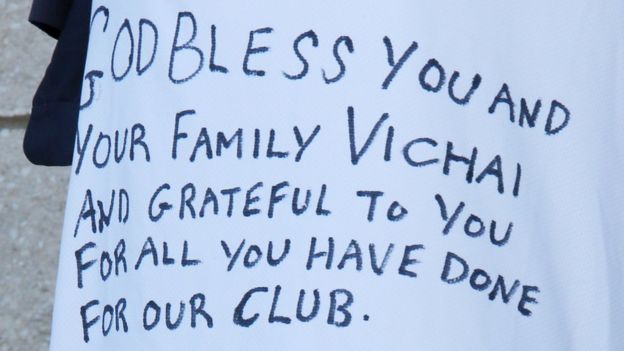 GOD BLESS YOU AND
YOUR FAMILY VICHAI
AND GRATEFUL TO YOU
FOR ALL YOU HAVE DONE
FOR OUR CLUB.